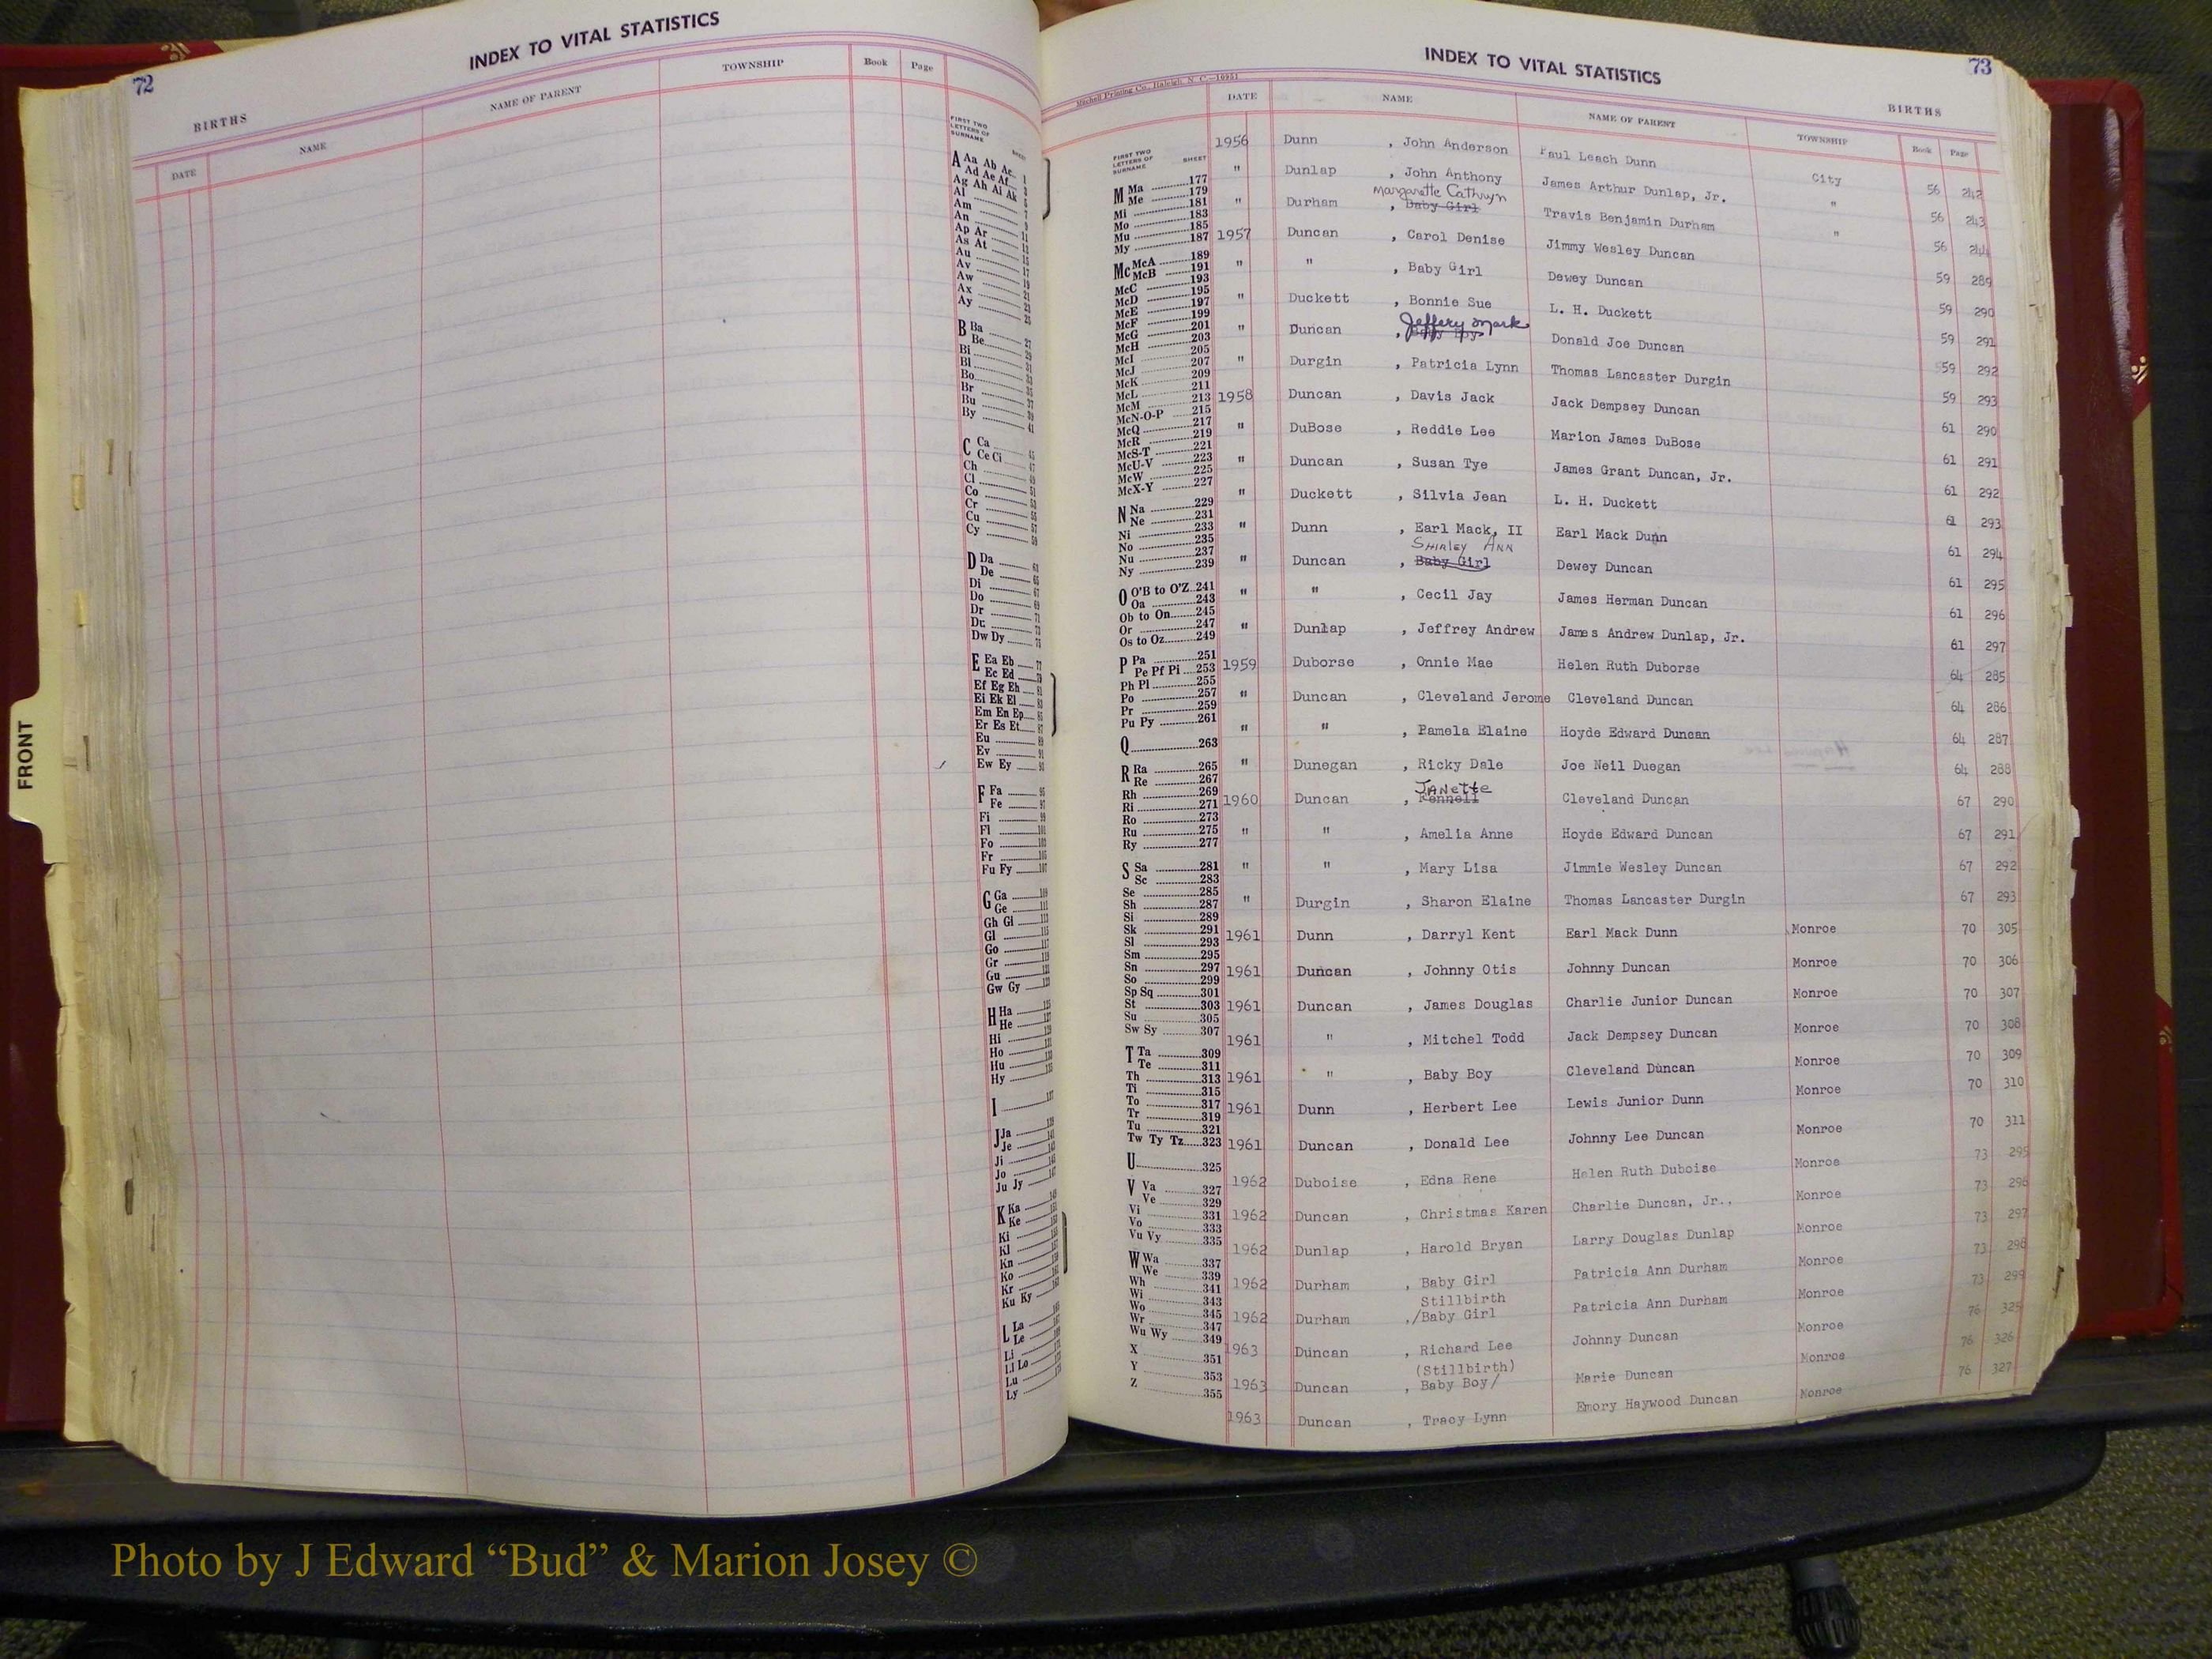 72
INDEX TO VITAL STATISTICS
BIRTHS
DATE NAME NAME OF PARENT TOWNSHIP Book Page
FIRST TWO
LETTERS OF
SURNAME
A Aa Ab Ac
Ad Ae Af
Ag Ah Ai Ak
Al
Am
An
Ap Ar
As At
Au
Av
Aw
Ax
Ay
B Ba
Be
Bi
Bl
Bo
Br
Bu
By
C Ca
Ce Ci
Ch
Cl
Co
Cr
Cu
Cy
D Da
De
Di
Do
Dr
Du
Dw Dy
E Ea Eb
Ec Ed
Ef Eg Eh
Ei Ek El
Em En Ep
Er Es Et
Eu
Ev
Ew Ey
F Fa
Fe
Fi
Fl
Fo
Fr
Fu Fy
G Ga
Ge
Gh Gi
Gl
Go
Gr
Gu
Gw Gy
H Ha
He
Hi
Ho
Hu
Hy
I
J Ja
Je
Ji
Jo
Ju Jy
K Ka
Ke
Ki
Kl
Kn
Ko
Kr
Ku Ky
L La
Le
Li
Ll Lo
Lu
Ly
FRONT
INDEX TO VITAL STATISTICS
73
Mitchell Printing Co., Raleigh, N. C.
BIRTHS
DATE NAME NAME OF PARENT TOWNSHIP Book Page
FIRST TWO
LETTERS OF
SURNAME SHEET
M Ma 177
Me 179
Mi 181
Mo 183
Mu 185
My 187
Mc McA 189
McB 191
McC 193
McD 195
McE 197
McF 199
McG 201
McH 203
McI 205
McJ 207
McK 209
McL 211
McM 213
McN-O-P 215
McQ 217
McR 219
McS-T 221
McU-V 223
McW 225
McX-Y 227
N Na 229
Ne 231
Ni 233
No 235
Nu 237
Ny 239
O O'B to O'Z 241
Oa 243
Ob to On 245
Or 247
Os to Oz 249
P Pa 251
Pe Pf Pi 253
Ph Pl 255
Po 257
Pr 259
Pu Py 261
Q 263
R Ra 265
Re 267
Rh 269
Ri 271
Ro 273
Ru 275
Ry 277
S Sa 281
Sc 283
Se 285
Sh 287
Si 289
Sk 291
Sl 293
Sm 295
Sn 297
So 299
Sp Sq 301
St 303
Su 305
Sw Sy 307
T Ta 309
Te 311
Th 313
Ti 315
To 317
Tr 319
Tu 321
Tw Ty Tz 323
U 325
V Va 327
Ve 329
Vi 331
Vo 333
Vu Vy 335
W Wa 337
We 339
Wh 341
Wi 343
Wo 345
Wr 347
Wu Wy 349
X 351
Y 353
Z 355
1956 Dunn , John Anderson Paul Leach Dunn City 56 242
" Dunlap , John Anthony James Arthur Dunlap, Jr. " 56 243
Margarette Cathryn
" Durham , Baby Girl Travis Benjamin Durham " 56 244
1957 Duncan , Carol Denise Jimmy Wesley Duncan 59 289
" " , Baby Girl Dewey Duncan 59 290
" Duckett , Bonnie Sue L. H. Duckett 59 291
Jeffery Mark
" Duncan , Baby Boy Donald Joe Duncan 59 292
" Durgin , Patricia Lynn Thomas Lancaster Durgin 59 293
1958 Duncan , Davis Jack Jack Dempsey Duncan 61 290
" DuBose , Reddie Lee Marion James DuBose 61 291
" Duncan , Susan Tye James Grant Duncan, Jr. 61 292
" Duckett , Silvia Jean L. H. Duckett 61 293
" Dunn , Earl Mack, II Earl Mack Dunn 61 294
Shirley Ann
" Duncan , Baby Girl Dewey Duncan 61 295
" " , Cecil Jay James Herman Duncan 61 296
" Dunlap , Jeffrey Andrew James Andrew Dunlap, Jr. 61 297
1959 Duborse , Onnie Mae Helen Ruth Duborse 64 285
" Duncan , Cleveland Jerome Cleveland Duncan 64 286
" " , Pamela Elaine Hoyde Edward Duncan 64 287
" Dunegan , Ricky Dale Joe Neil Duegan 64 288
Janette
1960 Duncan , Fennell Cleveland Duncan 67 290
" " , Amelia Anne Hoyde Edward Duncan 67 291
" " , Mary Lisa Jimmie Wesley Duncan 67 292
" Durgin , Sharon Elaine Thomas Lancaster Durgin 67 293
1961 Dunn , Darryl Kent Earl Mack Dunn Monroe 70 305
1961 Duncan , Johnny Otis Johnny Duncan Monroe 70 306
1961 Duncan , James Douglas Charlie Junior Duncan Monroe 70 307
1961 " , Mitchel Todd Jack Dempsey Duncan Monroe 70 308
1961 " , Baby Boy Cleveland Duncan Monroe 70 309
1961 Dunn , Herbert Lee Lewis Junior Dunn Monroe 70 310
1961 Duncan , Donald Lee Johnny Lee Duncan Monroe 70 311
1962 Duboise , Edna Rene Helen Ruth Duboise Monroe 73 295
1962 Duncan , Christmas Karen Charlie Duncan, Jr., Monroe 73 296
1962 Dunlap , Harold Bryan Larry Douglas Dunlap Monroe 73 297
1962 Durham , Baby Girl Patricia Ann Durham Monroe 73 298
Stillbirth
1962 Durham ,/Baby Girl Patricia Ann Durham Monroe 73 299
1963 Duncan , Richard Lee Johnny Duncan Monroe 76 325
(Stillbirth)
1963 Duncan , Baby Boy/ Marie Duncan Monroe 76 326
1963 Duncan , Tracy Lynn Emory Haywood Duncan Monroe 76 327
Photo by J Edward “Bud” & Marion Josey ©